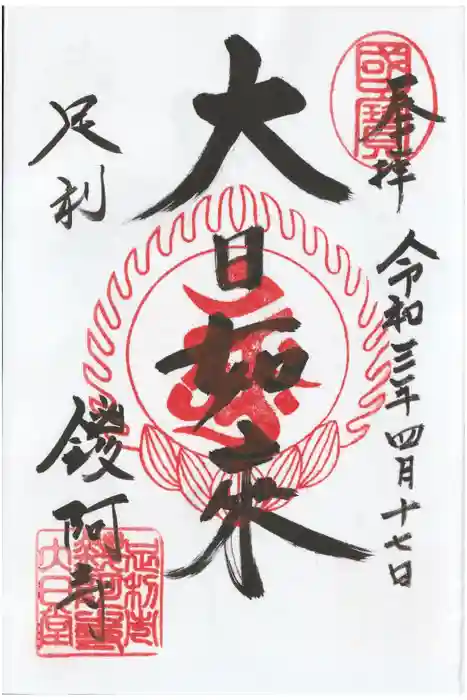 奉拝
令和三年四月十七日
大日如来
足利
鑁阿寺
國寶
足利市
鑁阿寺
大日堂